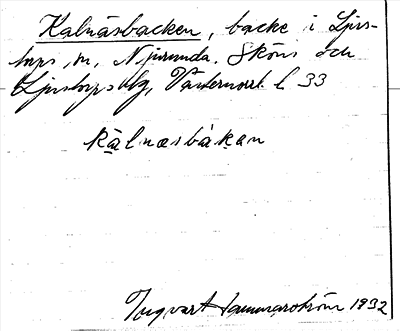 Kalnäsbacken, backe i Ljus-
torps sn, Njurunda, Sköns och
Ljustorps tlg, Västernorrl. l. 33
kālnæsbàkan
Ingvart Hammarström 1932